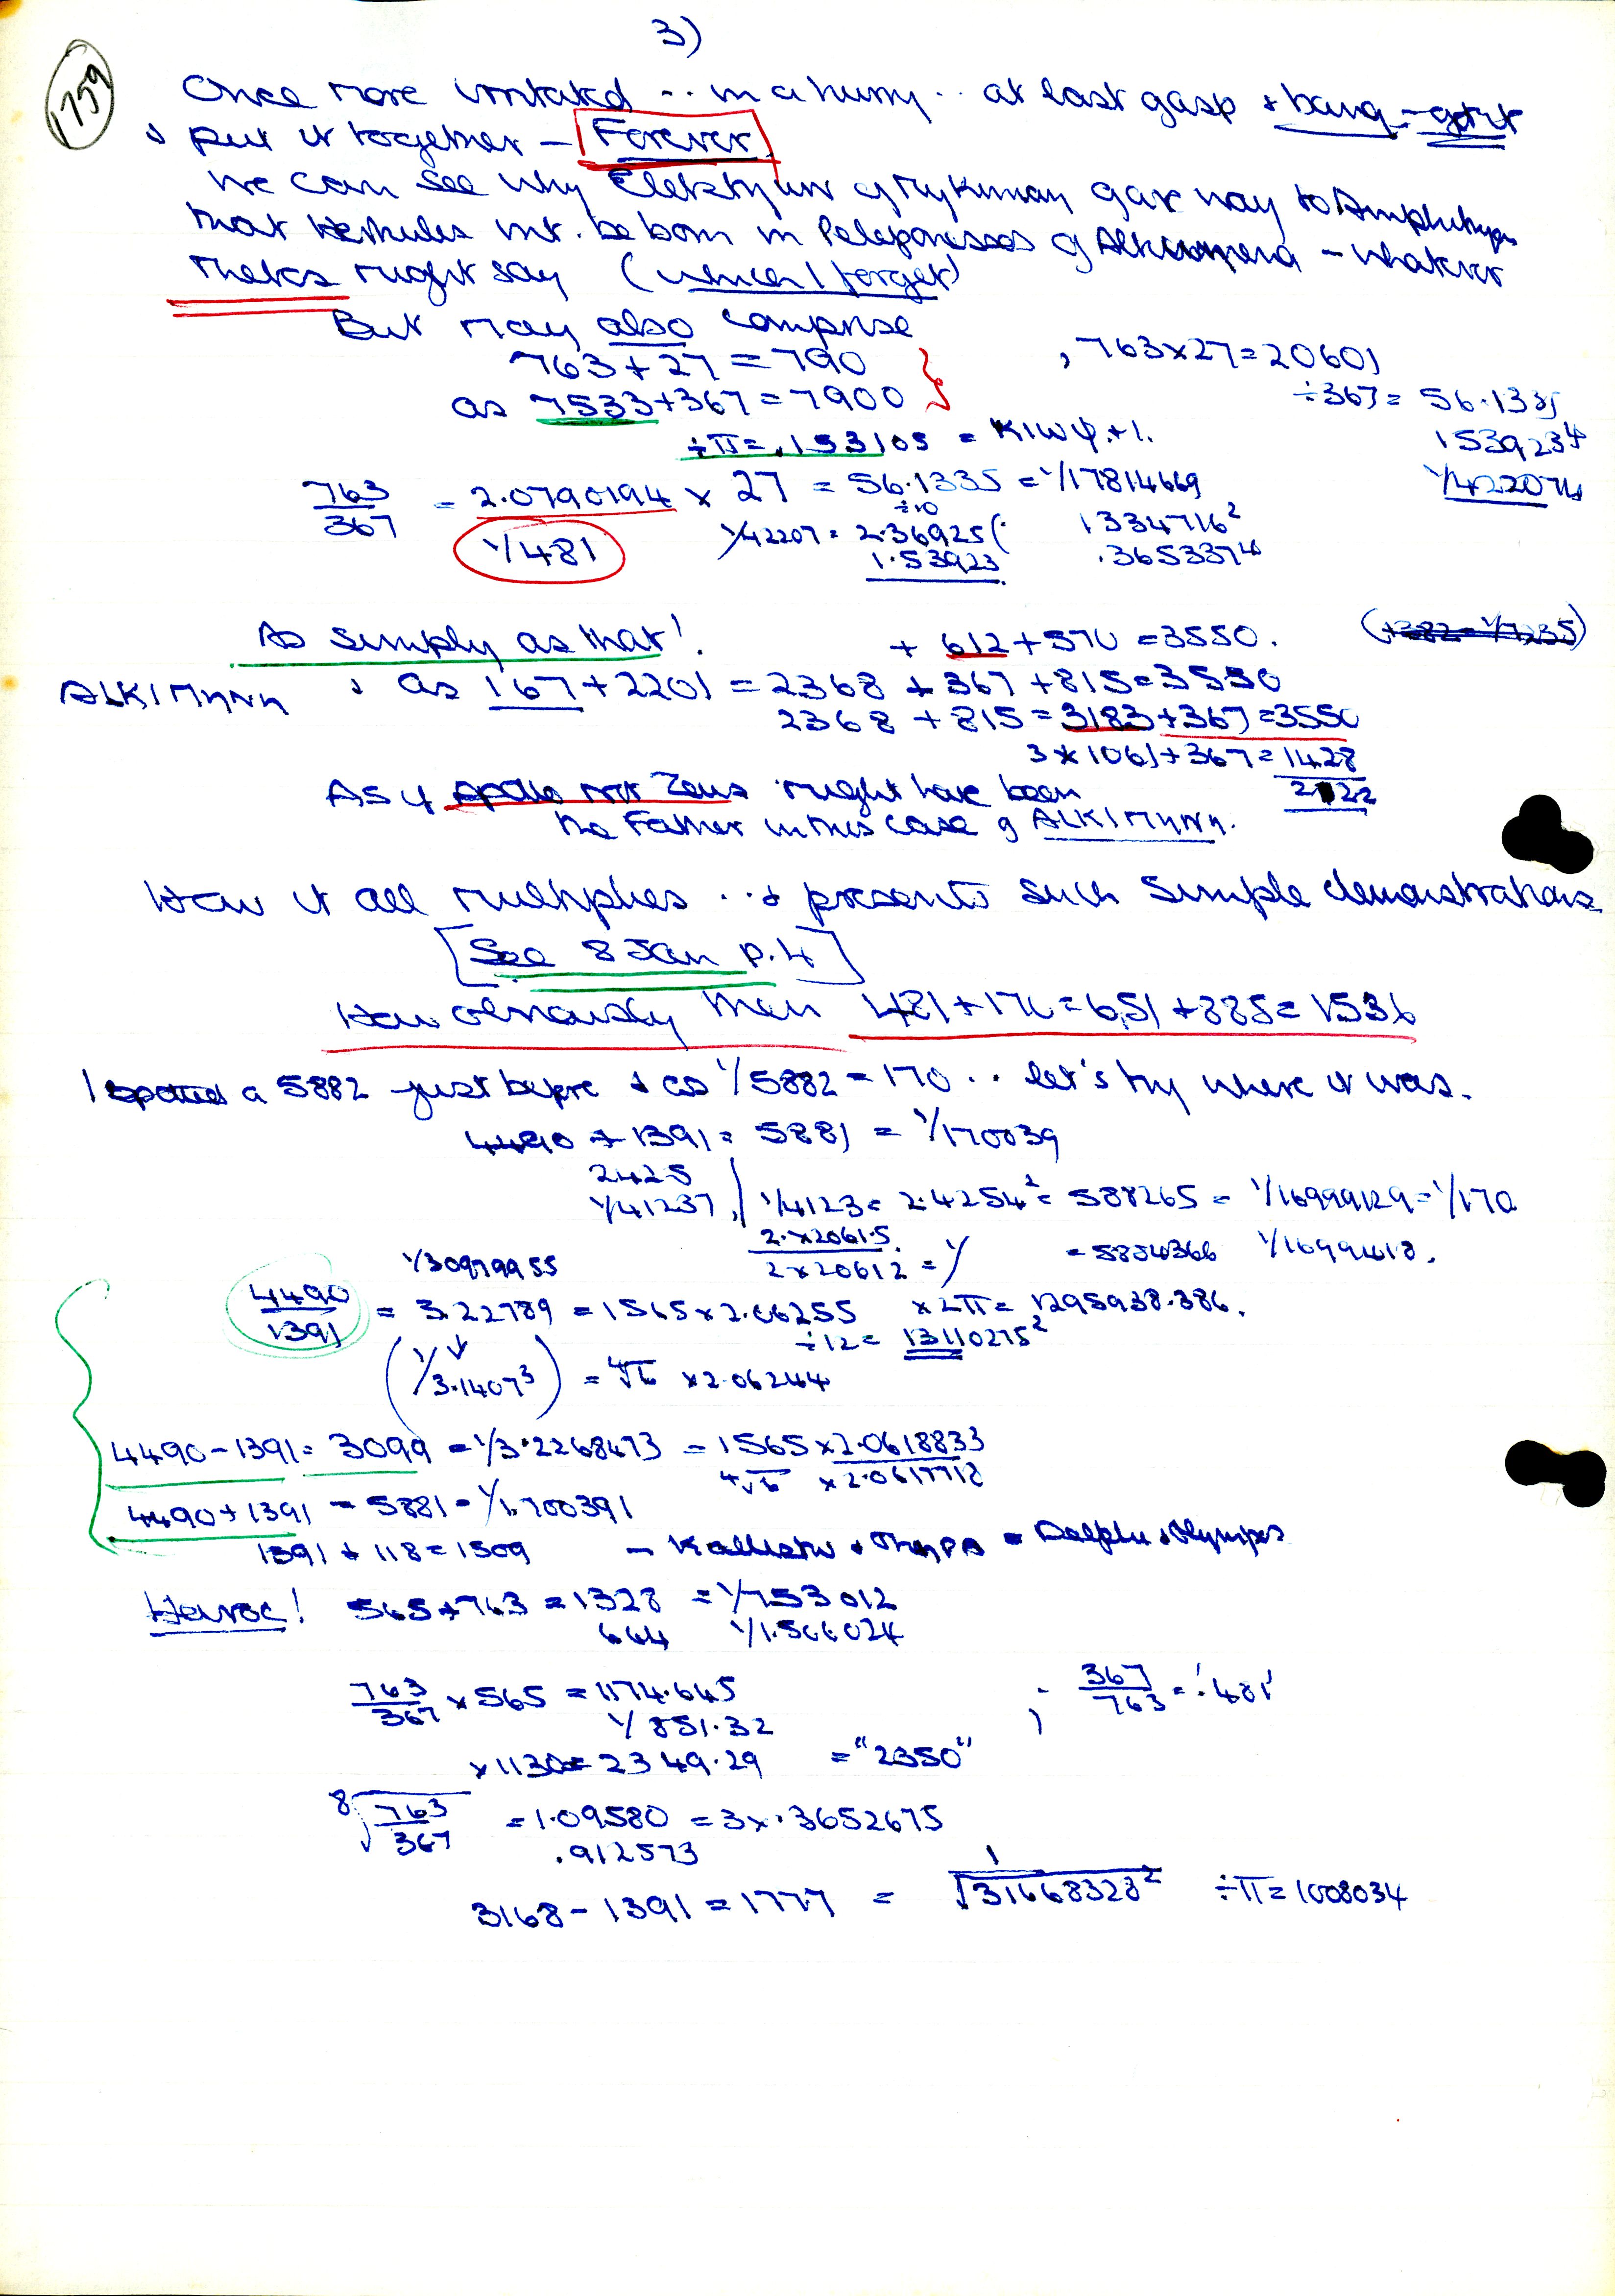 3)
1759
Once more irritated .. in a hurry .. at last gasp + bang - got it
+ put it together - Forever
We can see why of gave way to
that Herkules mt. be born in of - whatever
might say (which I forget)
But may also comprise
763+27=790
, 763×27=20601
as 7533+367=7900
÷367= 56.1335
÷π=.153105 = +1.
1539234
763/367 = 2.0790194 × 27 = 56.1335 = 1/17814669
1/422074
÷10
1334716²
1/481
1/42207 = 2.36925(
1.53923
.365337⁴
As simply as that!
+ 612+570 =3550.
ALKIMHNH
+ as 167+2201 = 2368 + 367 +815=3550
2368 +815=3183+367=3550
3×1061+367=1428
As if Apollo not Zeus might have been
2122
the Father in this case of ALKIMHNH.
How it all multiplies ..+ presents such simple demonstrations
[See 8 Jan p.4]
How obviously then 481+170=651+885=1536
I spotted a 5882 just before + as 1/5882 = 170 .. let's try where it was.
4490 + 1391 = 5881 = 1/170039
2425
1/41237, 1/4123= 2.4254² = 588265 = 1/16999129=1/170
2.×2061.5
2×20612 = 1/
=5884366 1/1699418.
1/30979955
4490/1391 = 3.22789 = 1565×2.06255 ×2π= 1295938.386.
÷12= 13110275²
(1/3.1407³) = ⁴√6 ×2.06244
4490-1391= 3099 =1/3.2268473 =1565×2.0618833
⁴√6 ×2.0617718
4490+1391 = 5881=1/1.700391
1391+118=1509 - Kallisto + = Delphi + Olympos
565+763=1328 =1/753012
664 1/1.506024
763/367 ×565 =1174.645
; 367/763 = '.481'
1/851.32
×1130= 2349.29 ="2350"
8√763/367 =1.09580 =3×.3652675
.912573
3168-1391=1777 = 1/√31668328² ÷π=1008034